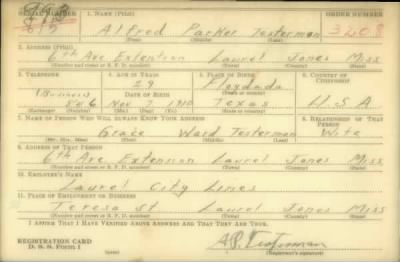 SERIAL NUMBER 1. NAME (Print) ORDER NUMBER
Alfred Parker Testerman 3208
(First) (Middle) (Last)
2. ADDRESS (Print)
6th Ave Extention Laurel Jones Miss
(Number and street or R. F. D. number) (Town) (County) (State)
3. TELEPHONE 4. AGE IN YEARS 5. PLACE OF BIRTH 6. COUNTRY OF CITIZENSHIP
29 Floydada
DATE OF BIRTH
846 Nov 7 1910 Texas U.S.A
(Exchange) (Number) (Mo.) (Day) (Yr.) (State or country)
7. NAME OF PERSON WHO WILL ALWAYS KNOW YOUR ADDRESS 8. RELATIONSHIP OF THAT PERSON
Grace Ward Testerman Wife
(Mr., Mrs., Miss) (First) (Middle) (Last)
9. ADDRESS OF THAT PERSON
6th Ave Extension Laurel Jones Miss
(Number and street or R. F. D. number) (Town) (County) (State)
10. EMPLOYER'S NAME
Laurel City Lines
11. PLACE OF EMPLOYMENT OR BUSINESS
Teresa St Laurel Jones Miss
(Number and street or R. F. D. number) (Town) (County) (State)
I AFFIRM THAT I HAVE VERIFIED ABOVE ANSWERS AND THAT THEY ARE TRUE.
REGISTRATION CARD
D. S. S. FORM 1 A.P. Testerman
(Registrant's signature)